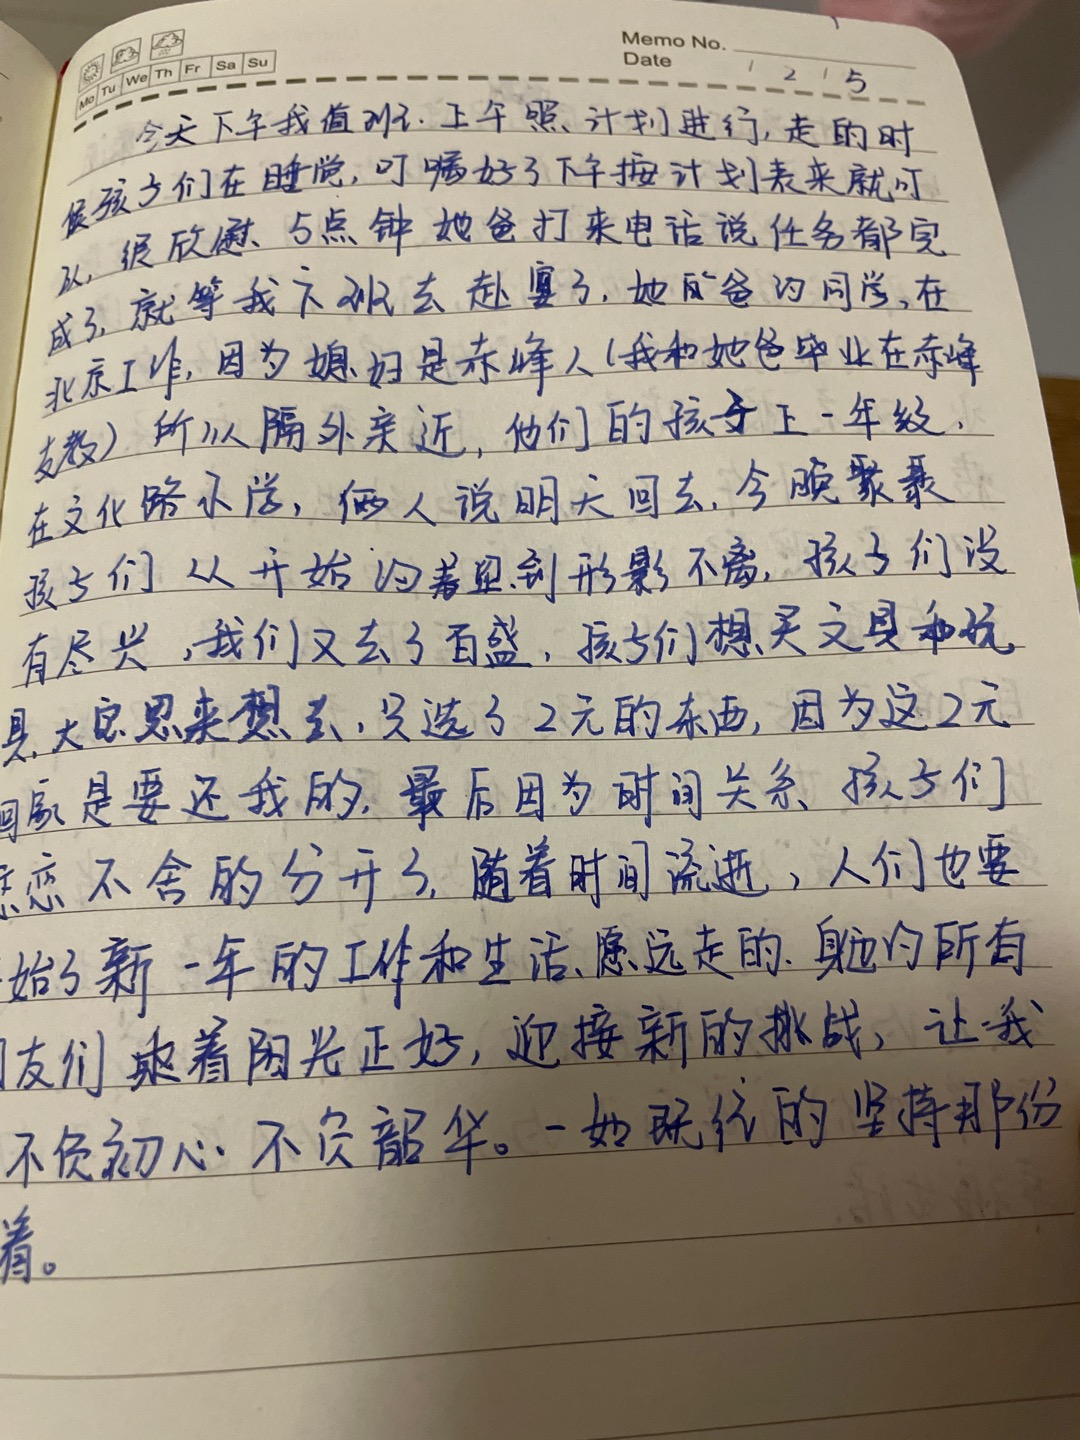 Memo No.
Date 1 2 1 5
Mo Tu We Th Fr Sa Su
今天下午我值班.上午照计划进行,走的时
候孩子们在睡觉,叮嘱好了下午按计划表来就可
以,很欣慰.5点钟她爸打来电话说任务都完
成了,就等我下班去赴宴了,她爸的同学,在
北京工作,因为媳妇是赤峰人(我和她爸毕业在赤峰
支教)所以隔外亲近,他们的孩子上一年级,
在文化路小学,俩人说明天回去,今晚聚聚
孩子们从开始的着思到形影不离,孩子们没
有尽兴,我们又去了百盛,孩子们想买文具和玩
具,大宝思来想去,只选了2元的东西,因为这2元
回家是要还我的,最后因为时间关系,孩子们
恋恋不舍的分开了,随着时间流逝,人们也要
始了新一年的工作和生活、愿远走的、身边的所有
朋友们 着阳光正好,迎接新的挑战,让我
不负初心.不负韶华。一如既往的坚持那份
着。